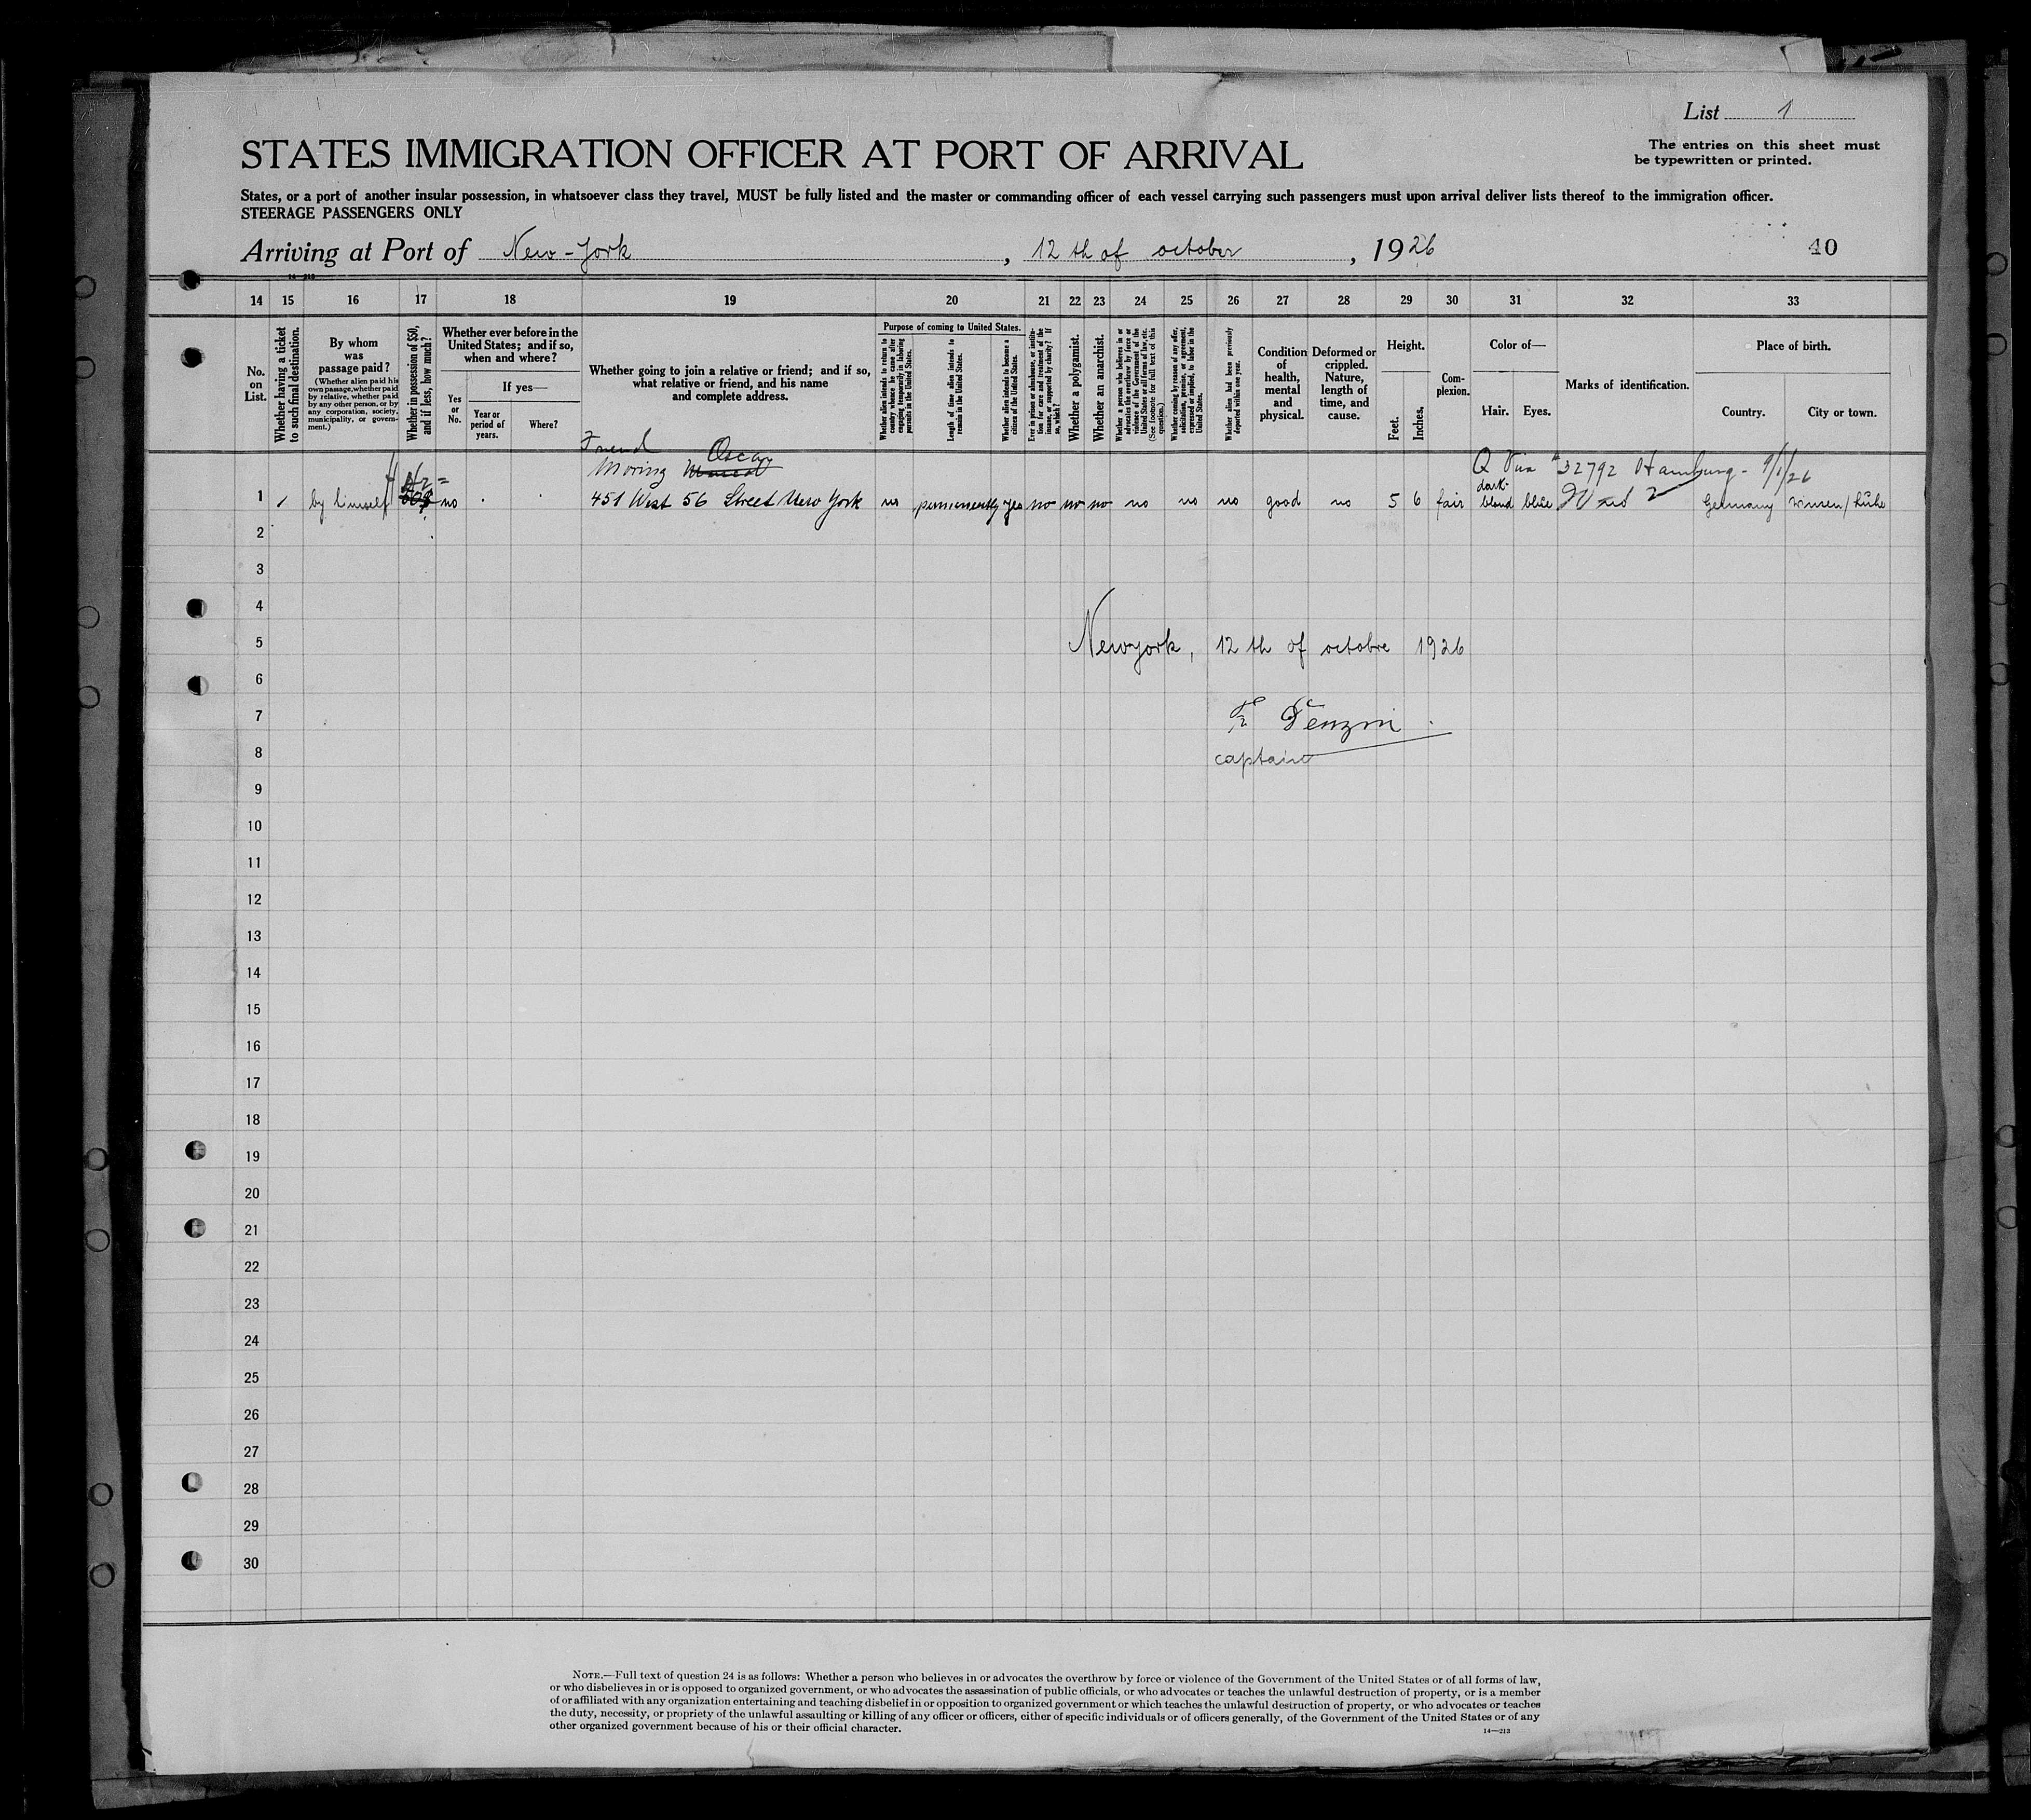 List 1
STATES IMMIGRATION OFFICER AT PORT OF ARRIVAL
The entries on this sheet must
be typewritten or printed.
States, or a port of another insular possession, in whatsoever class they travel, MUST be fully listed and the master or commanding officer of each vessel carrying such passengers must upon arrival deliver lists thereof to the immigration officer.
STEERAGE PASSENGERS ONLY
Arriving at Port of New-York, 12 th of october, 1926
40
14—213
14 15 16 17 18 19 20 21 22 23 24 25 26 27 28 29 30 31 32 33
No. on List.
Whether having a ticket to such final destination.
By whom was passage paid?
(Whether alien paid his own passage, whether paid by relative, whether paid by any other person, or by any corporation, society, municipality, or government.)
Whether in possession of $50, and if less, how much?
Whether ever before in the United States; and if so, when and where?
Yes or No.
If yes—
Year or period of years.
Where?
Whether going to join a relative or friend; and if so, what relative or friend, and his name and complete address.
Purpose of coming to United States.
Whether alien intends to return to country whence he came after engaging temporarily in laboring pursuits in the United States.
Length of time alien intends to remain in the United States.
Whether alien intends to become a citizen of the United States.
Ever in prison or almshouse, or institution for care and treatment of the insane, or supported by charity? If so, which?
Whether a polygamist.
Whether an anarchist.
Whether a person who believes in or advocates the overthrow by force or violence of the Government of the United States or all forms of law, etc. (See footnote for full text of this question.)
Whether coming by reason of any offer, solicitation, promise, or agreement, expressed or implied, to labor in the United States.
Whether alien had been previously deported within one year.
Condition of health, mental and physical.
Deformed or crippled. Nature, length of time, and cause.
Height.
Feet.
Inches.
Complexion.
Color of—
Hair.
Eyes.
Marks of identification.
Place of birth.
Country.
City or town.
Friend
Moring Oscar
Q Visa #32792 Hamburg - 9/1/26
dark-
1 by himself no 451 West 56 Street New York no permenently yes no no no no no no good no 5 6 fair blond blue Germany Winsen/Luhe
2
3
4
5
Newyork, 12 th of octobre 1926
6
7
8
captain
9
10
11
12
13
14
15
16
17
18
19
20
21
22
23
24
25
26
27
28
29
30
NOTE.—Full text of question 24 is as follows: Whether a person who believes in or advocates the overthrow by force or violence of the Government of the United States or of all forms of law,
or who disbelieves in or is opposed to organized government, or who advocates the assassination of public officials, or who advocates or teaches the unlawful destruction of property, or is a member
of or affiliated with any organization entertaining and teaching disbelief in or opposition to organized government or which teaches the unlawful destruction of property, or who advocates or teaches
the duty, necessity, or propriety of the unlawful assaulting or killing of any officer or officers, either of specific individuals or of officers generally, of the Government of the United States or of any
other organized government because of his or their official character.
14—213